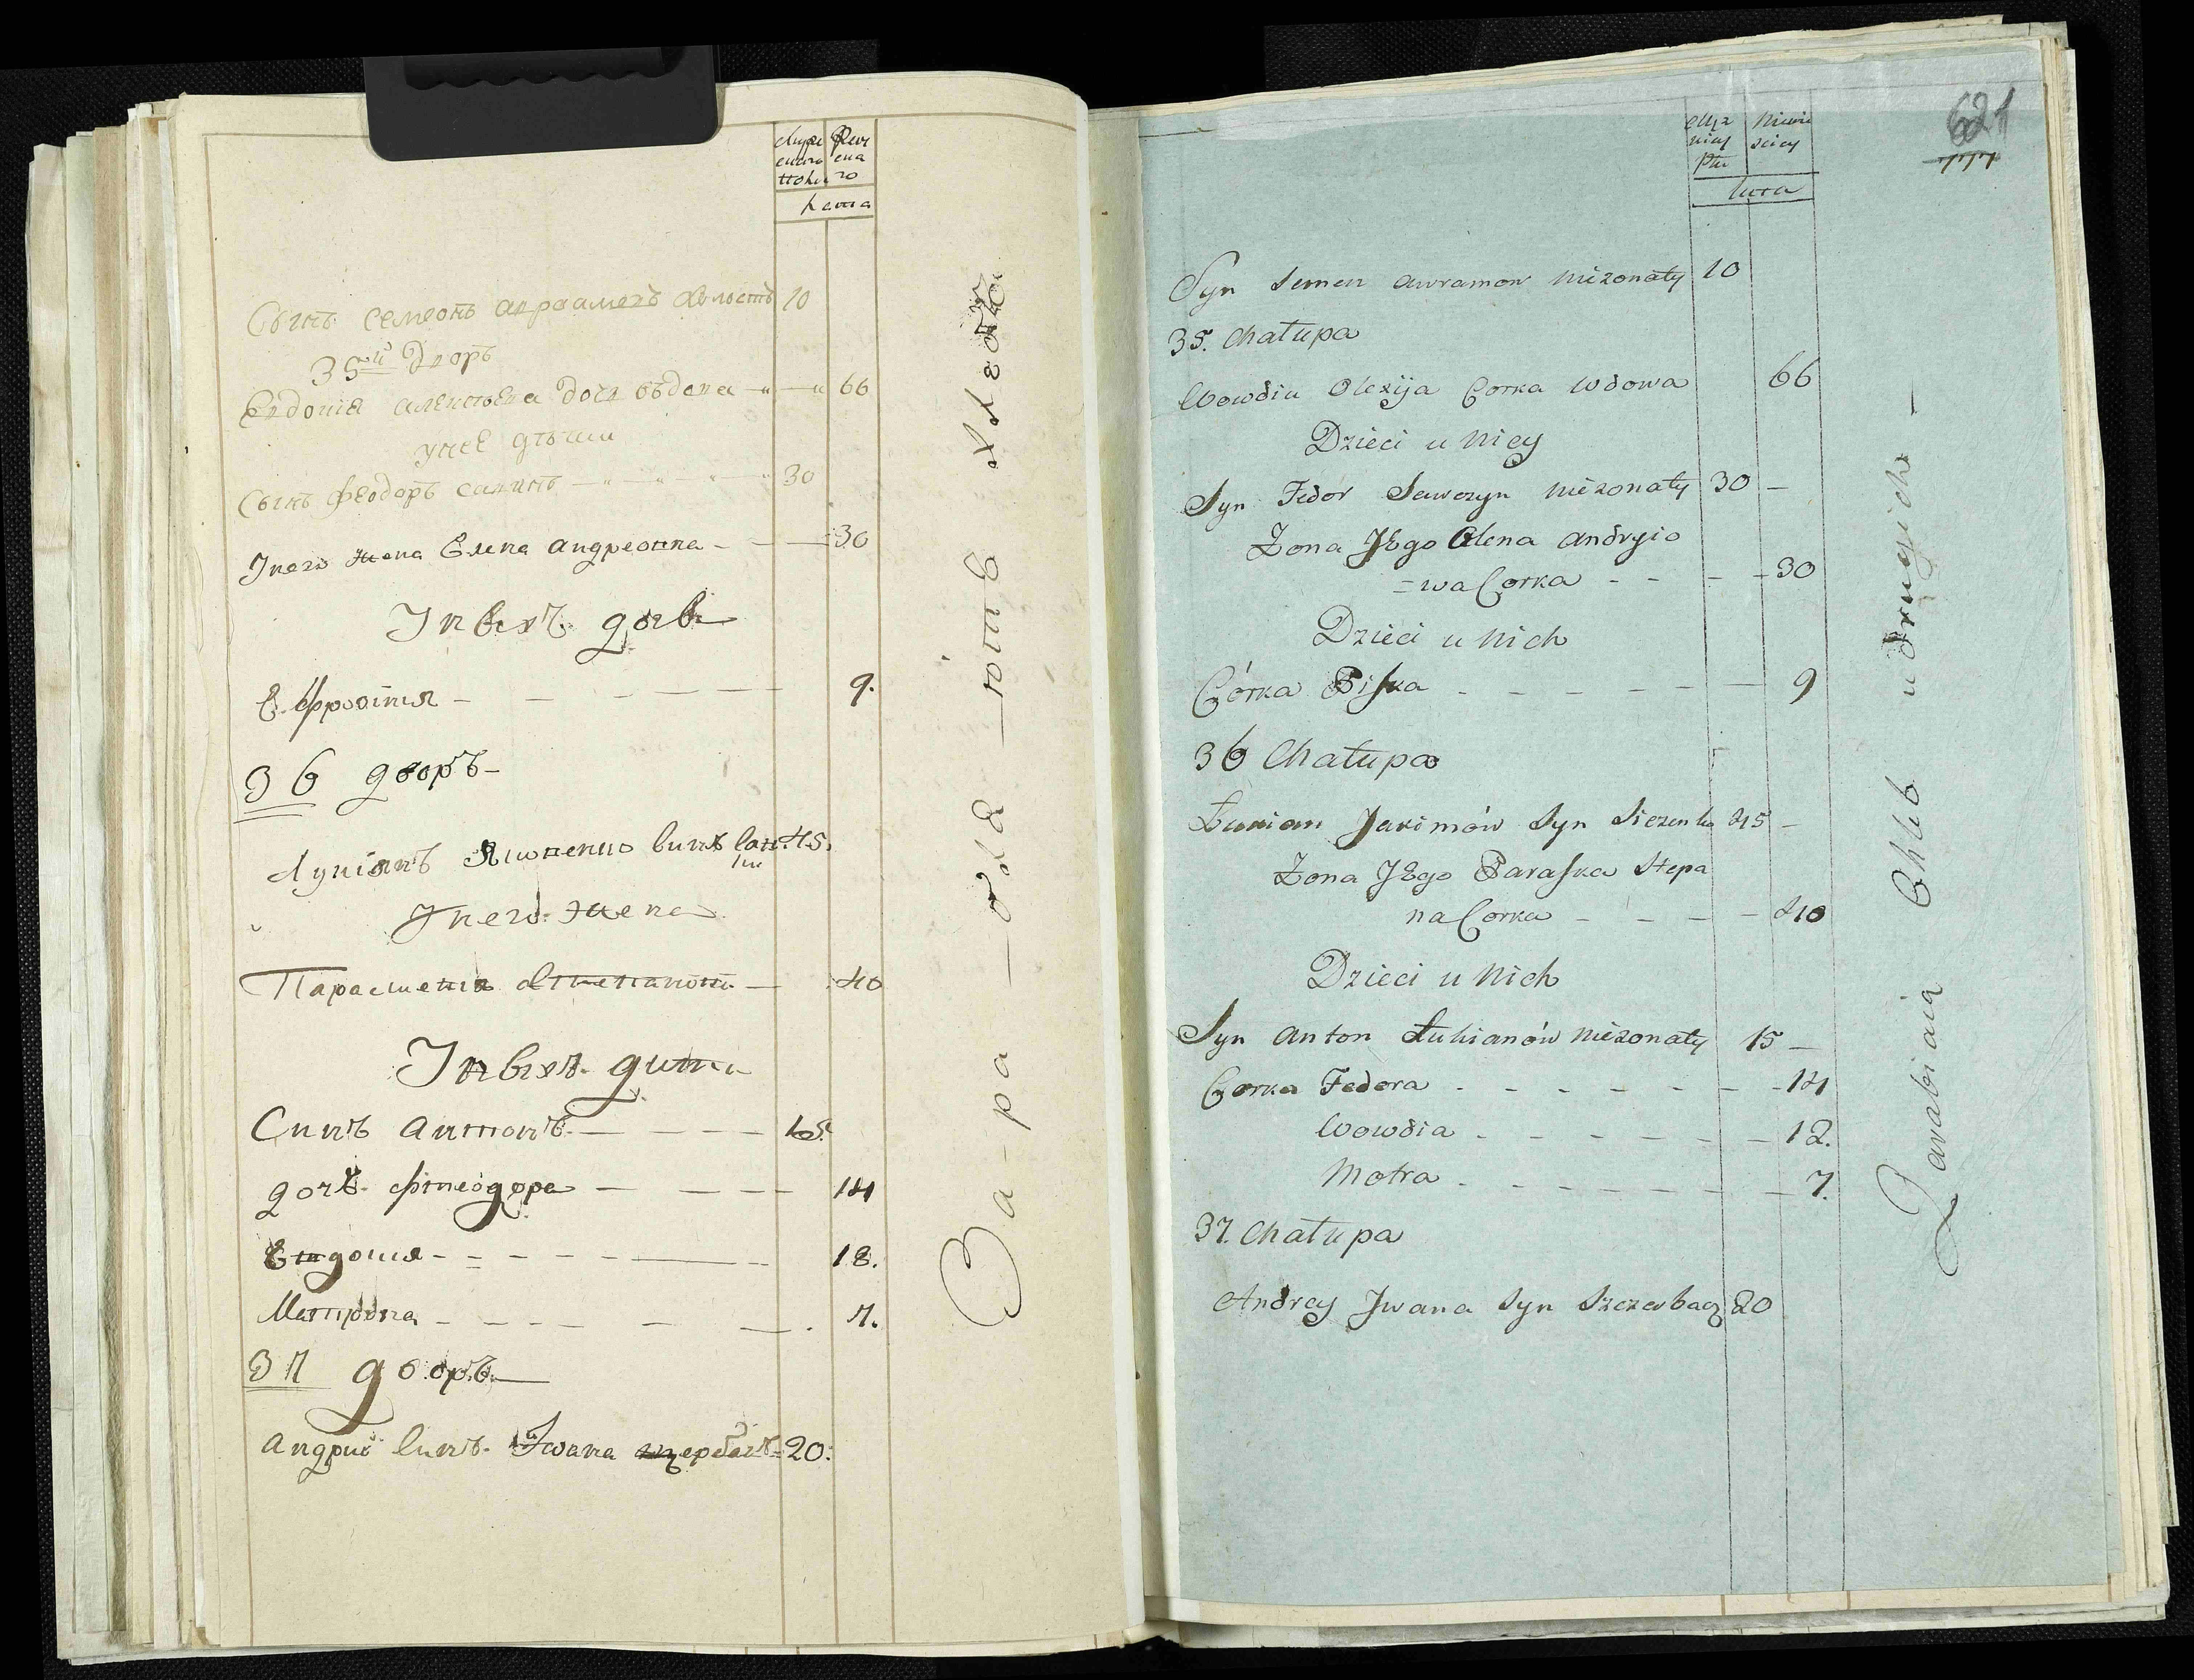 Муже
ена
лѣта
Сынъ Семеонъ авраамовъ холостъ 10
35й Дворъ
Евдокія алексѣева дочь вѣдова 66
унее дѣти
Сынъ Феодоръ савинъ 30
Інего жена Елена андреовна 30
Інихъ дочь
Е.фросінія 9.
36 дворъ
Лукіянъ синъ 45.
Інего жена
Параскевія 40
Інихъ дити
Синъ антонъ 15
дочъ фтеодора 14
Евдокія 12.
Матрона 7.
37 дворъ
андрий синъ Iвана щербань 20:
За-ра-б
621
777
Męz
kiey
Płci
Niewie
sciey
Lata
Syn Semen Awramow Nieżonaty 10
35. Chałupa
Wowdia Olexija Corka Wdowa 66
Dzieci u Niey
Syn Fedor Sawczyn Nieżonaty 30 –
Żona JEgo Olena Andryio
=wa Corka 30
Dzieci u Nich
Córka Piska 9
36 Chałupa
Łukian Jakimów Syn Siczenko 45 –
Żona JEgo Paraska Stepa
na Corka 40
Dzieci u Nich
Syn Anton Łukianów Nieżonaty 15 –
Corka Fedora 14
Wowdia 12.
Motra 7.
37. Chałupa
Andrey Jwana Syn Szczerbacz 20
Zarabiaią Chleb u drugich –